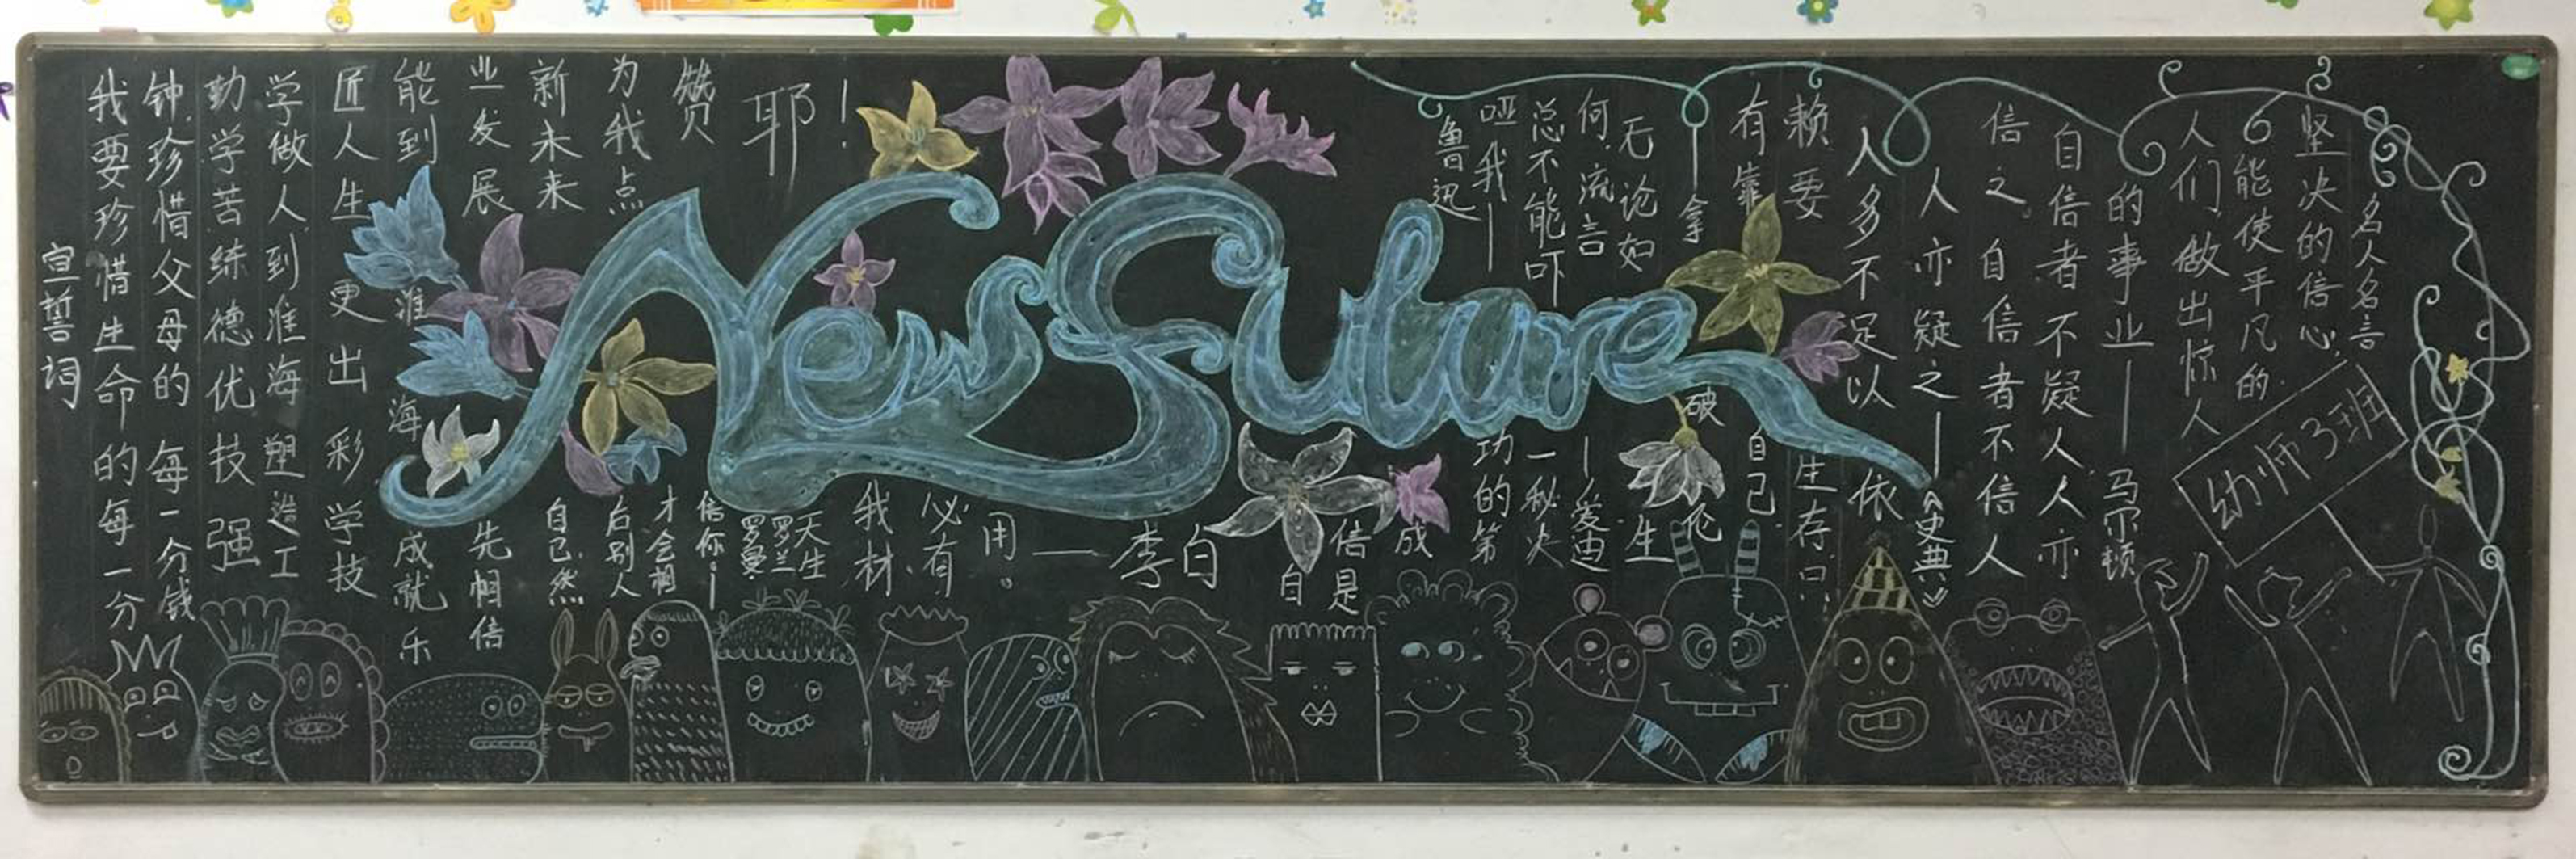 New Future
宣誓词
我要珍惜生命的每一分
钟,珍惜父母的每一分钱
勤学苦练德优技强
学做人到淮海塑造工
匠人生更出彩学技
能到淮海成就乐
业发展先相信
新未来自己然
为我点后别人
赞才会相
耶!信你。—
罗曼
罗兰
天生
我材
必有
用。—李白
名人名言
坚决的信心,
能使平凡的
人们,做出惊人
的事业——马尔顿
自信者不疑人人亦
信之。自信者不信人
人亦疑之——《史典》
人多不足以依
赖要生存只
有靠自己
—拿破伦
无论如生
何,流言—爱迪
总不能吓一秘决
哑我—功的第
鲁迅成
信是
自
幼师3班